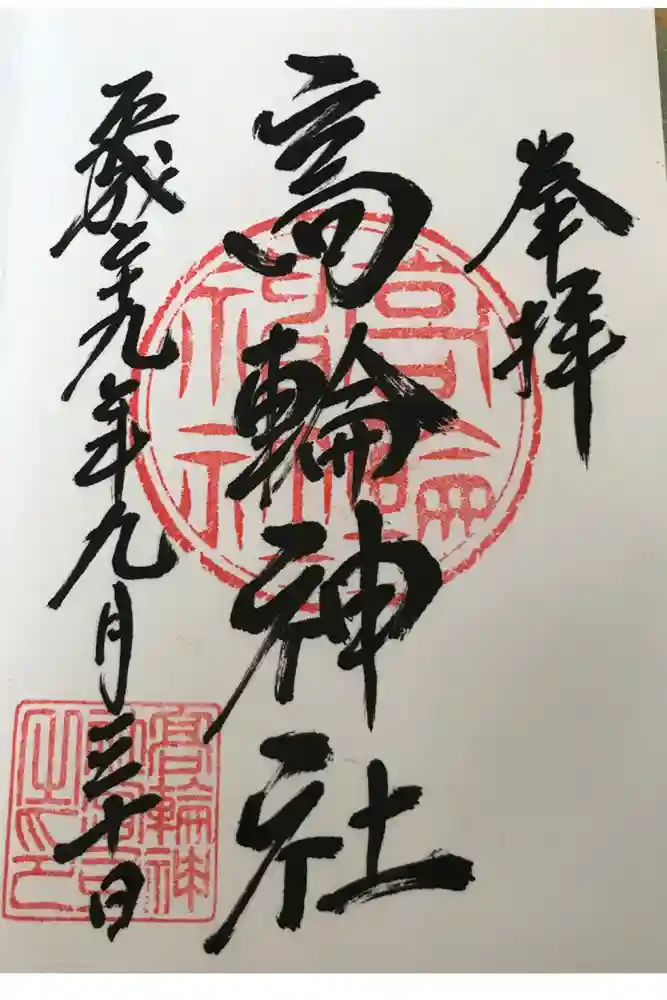 奉拝
高輪神社
平成二十九年九月三十日
高輪神社
高輪神
社宮司
之印